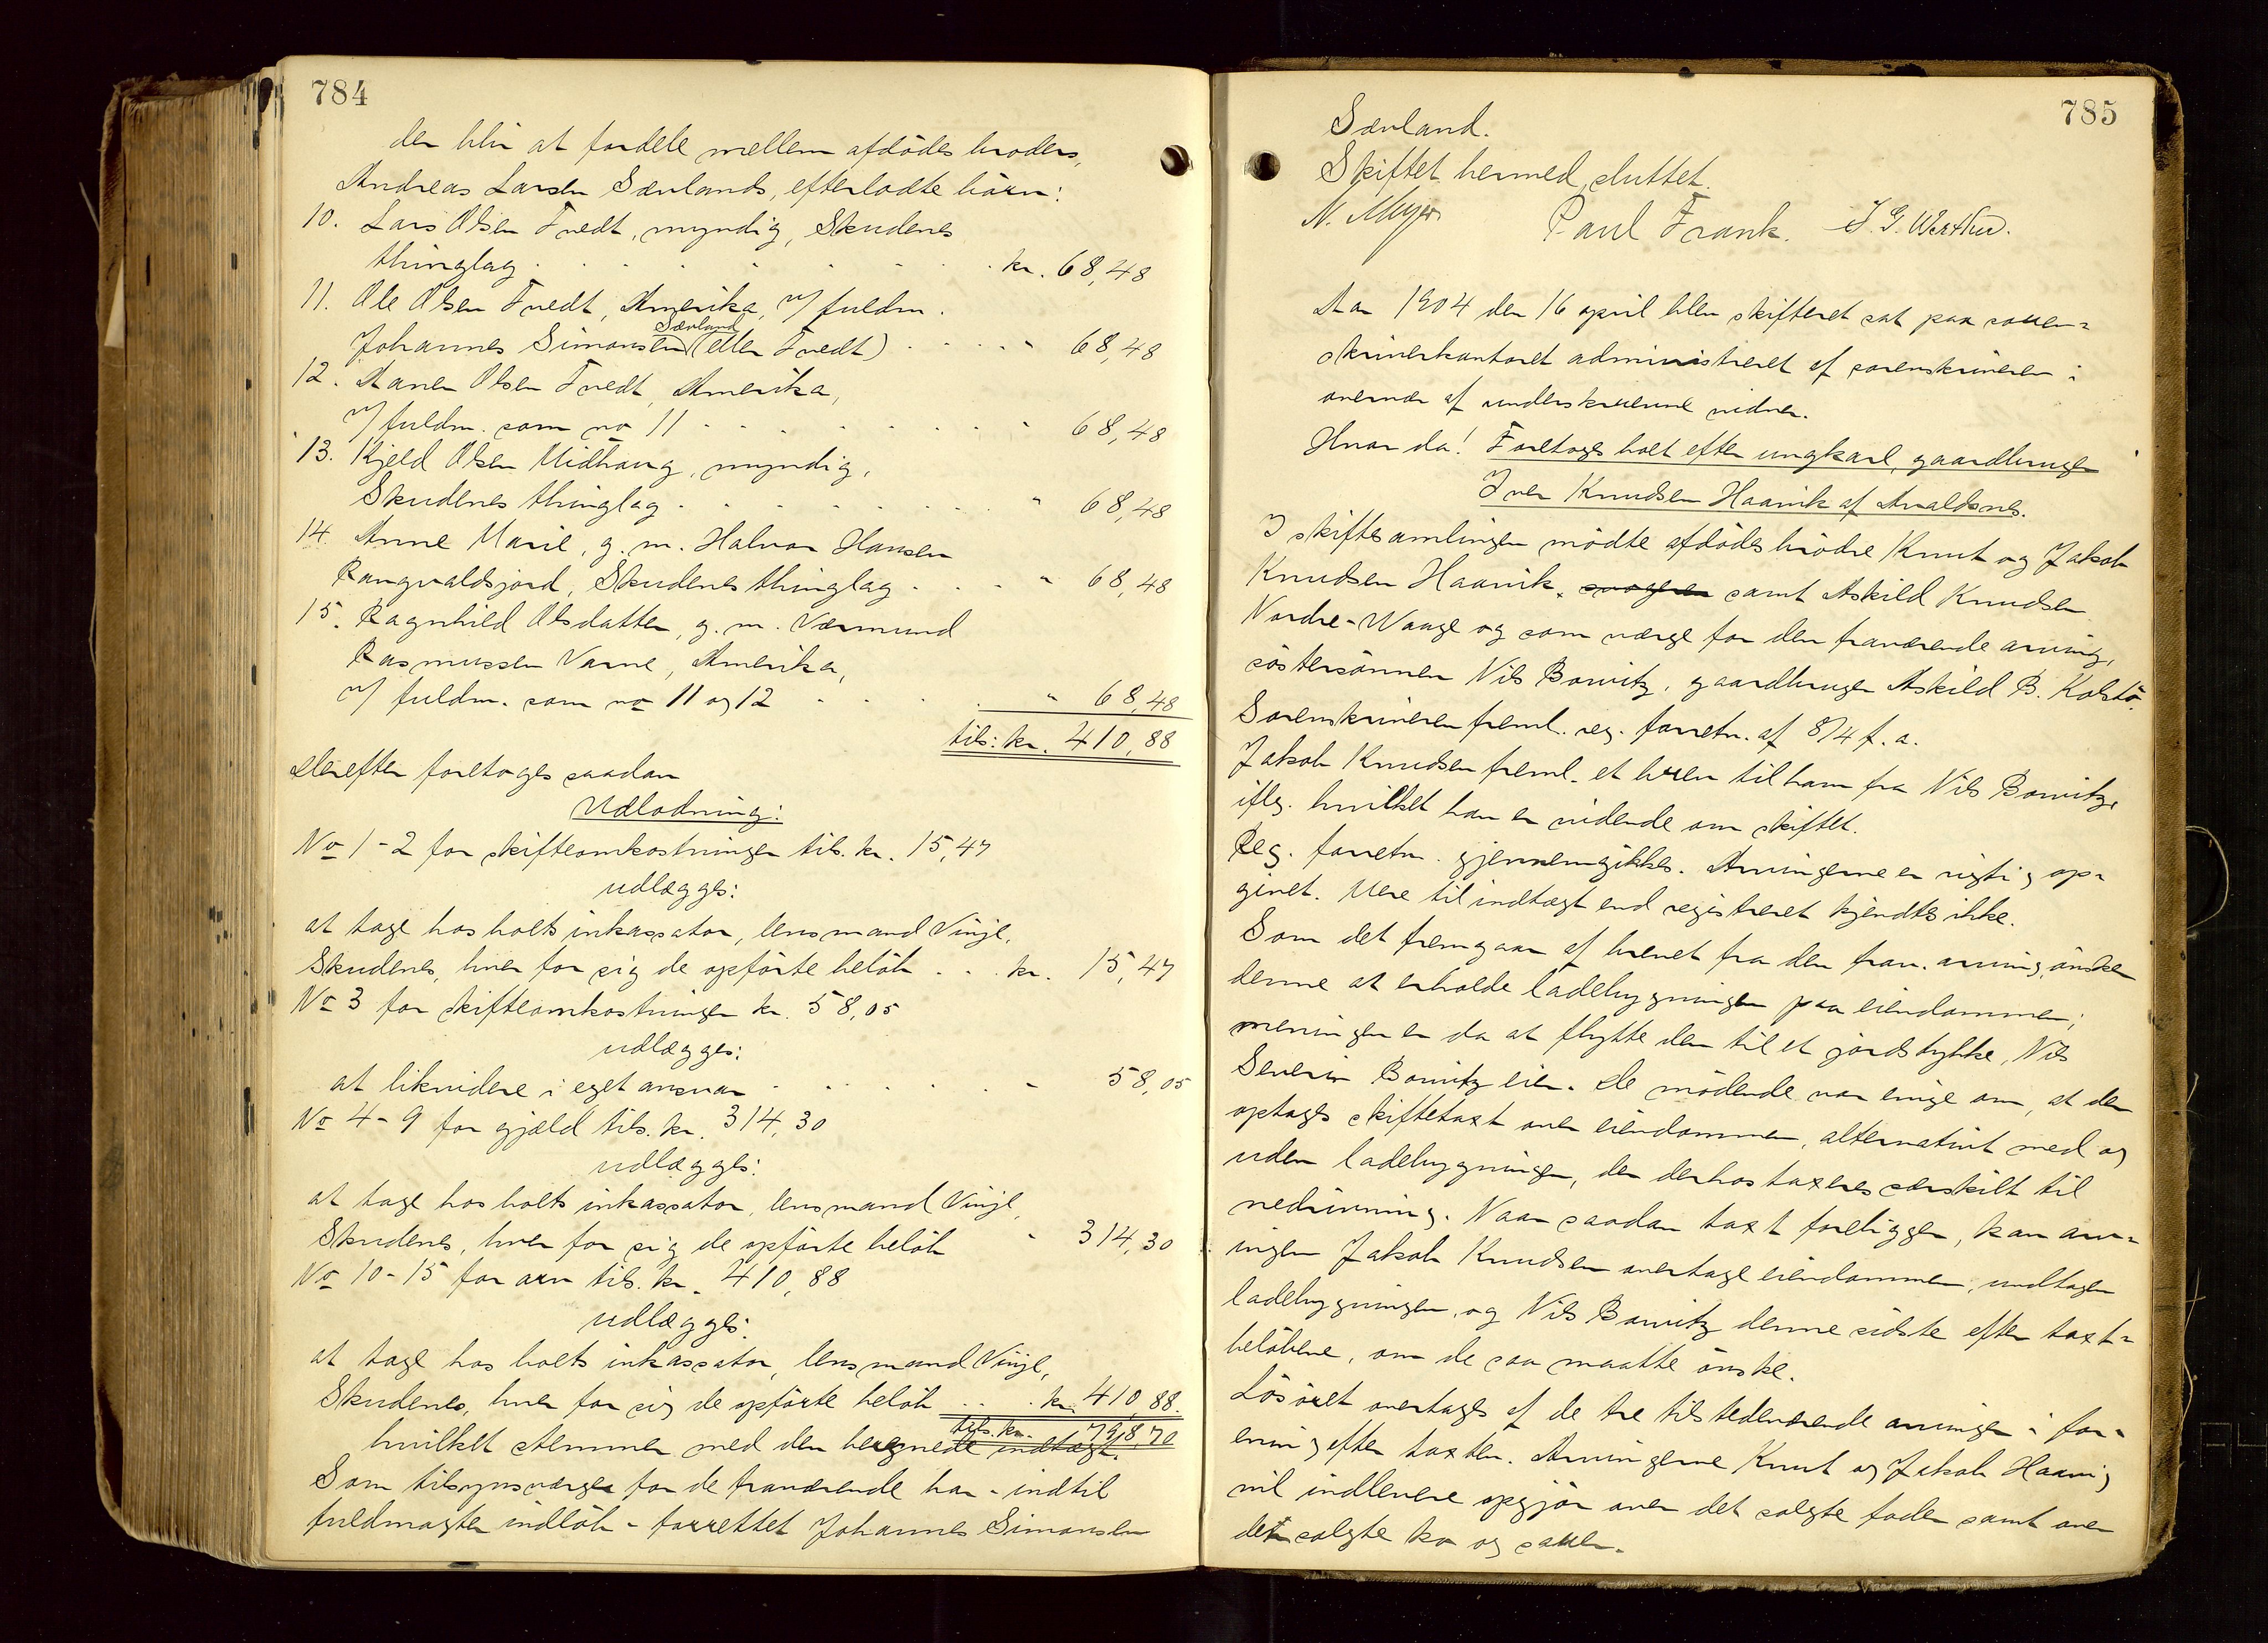 784
der blir at fordele mellem afdødes broders,
Andreas Larsen Sævlands, efterladte børn:
10. Lars Olsen Tvedt, myndig, Skudenes
thinglag . . . . . . . . kr. 68,48
11. Ole Olsen Tvedt, Amerika, v/ fuldm.
Sævland
Johannes Simonsen (eller Tvedt) . . . . " 68,48
12. Aanen Olsen Tvedt, Amerika,
v/ fuldm. som no 11 . . . . . . . " 68,48
13. Kjeld Olsen Midhaug, myndig,
Skudenes thinglag . . . . . . " 68,48
14. Anne Marie, g. m. Halvor Hansen
Rangvaldsjord, Skudenes thinglag . . . " 68,48
15. Ragnhild Olsdatter, g. m.Værmund
Rasmussen Varne, Amerika,
v/ fuldm. som no 11 og 12 . . . . " 68,48
tils: kr. 410,88
Derefter foretoges saadan
Udlodning:
No 1-2 for skifteomkostninger tils. kr. 15,47
udlægges:
at tage hos boets inkassator, lensmand Vinje,
Skudenes, hver for sig de opførte beløb . . . kr. 15,47
No 3 for skifteomkostninger kr. 58,05
udlægges:
at likvidere i eget ansvar . . . . . . " 58,05
No 4-9 for gjæld tils. kr. 314,30
udlægges:
at tage hos boets inkassator, lensmand Vinje,
Skudenes, hver for sig de opførte beløb " 314,30
No 10-15 for arv tils. kr. 410,88
udlægges:
at tage hos boets inkassator, lensmand Vinje,
Skudenes, hver for sig de opførte beløb . . . kr. 410,88.
tils. kr. 798,70
hvilket stemmer med den beregnede indtægt.
Som tilsynsværge for de fraværende har - indtil
fuldmagter indløb - forrettet Johannes Simonsen
785
Sævland.
Skiftet hermed sluttet.
N. Meyer Paul Frank.
Aar 1904 den 16 april blev skifteret sat paa soren-
skriverkontoret administreret af sorenskriveren i
overvær af underskrevne vidner.
Hvor da! Foretoges boet efter ungkarl, gaardbruger
Iver Knudsen Haavik af Avaldsnes.
I skiftesamlingen mødte afdødes brødre Knut og Jakob
Knudsen Haavik, svogeren samt Askild Knudsen
Nordre-Waage og som værge for den fraværende arving,
søstersønnen Nils Bowitz, gaardbruger Askild B. Kolstø.
Sorenskriveren freml. reg. forretn. af 8/4 f. a.
Jakob Knudsen freml. et brev til ham fra Nils Bowitz,
iflg. hvilket han er vidende om skiftet.
Reg. forretn. gjennemgikkes. Arvingerne er rigtig op-
givet. Mere til indtægt end registreret kjendtes ikke.
Som det fremgaar af brevet fra den frav. arving, ønsker
denne at erholde ladebygningen paa eiendommen;
meningen er da at flytte den til et jordstykke, Nils
Severin Bowitz eier. De mødende var enige om, at der
optages skiftetaxt over eiendommen, alternativt med og
uden ladebygningen, der derhos taxeres særskilt til
nedrivning. Naar saadan taxt foreligger, kan arv-
ingen Jakob Knudsen overtage eiendommen, undtagen
ladebygningen, og Nils Bowitz denne sidste efter taxt-
beløbene, om de saa maatte ønske.
Løsøret overtages af de tre tilstedeværende arvinger i for-
ening efter taxten. Arvingerne Knut og Jakob Haavig
vil indlevere opgjør over det solgte foder samt over
den solgte ko og sauer.